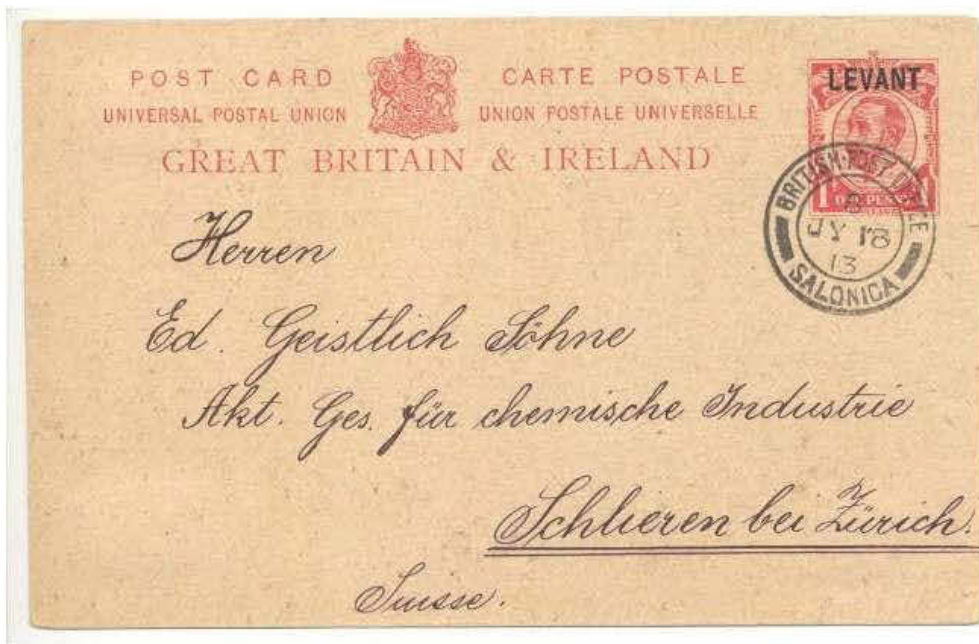 POST CARD CARTE POSTALE
UNIVERSAL POSTAL UNION UNION POSTALE UNIVERSELLE
GREAT BRITAIN & IRELAND
LEVANT
1 ONE PENNY 1
BRITISH·POST OFFICE
8
JY 18
13
SALONICA
Herren
Ed. Geistlich Söhne
Akt. Ges. für chemische Industrie
Schlieren bei Zürich.
Suisse.